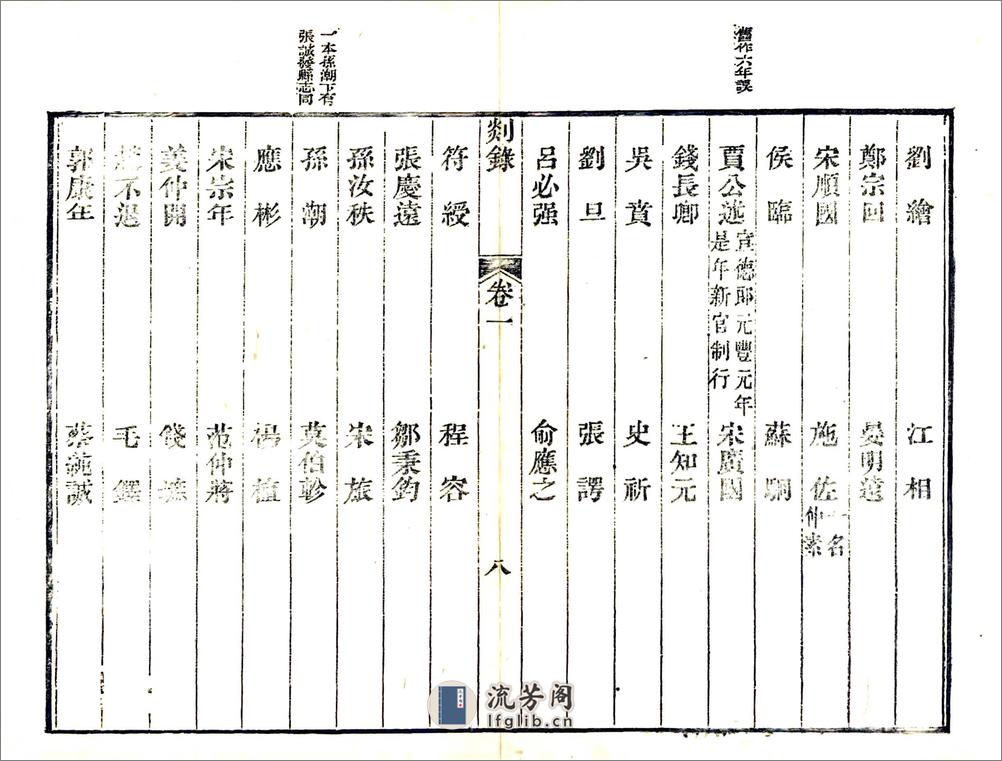 舊作六年誤
劉繪　江相
鄭宗回　晏明遠
宋順國　施佐一名仲素
侯臨　蘇駉
賈公述宣德郎元豐元年是年新官制行　宋廣國
錢長卿　王知元
吳賁　史祈
劉旦　張諤
呂必强　俞應之
剡錄　卷一　八
符綬　程容
張慶遠　鄒秉鈞
一本孫潮下有張誠發縣志同
孫汝秩　宋旅
孫潮　莫伯軫
應彬　楊植
宋宗年　范仲將
姜仲開　錢
不退　毛鐸
郭康年　蔡純誠
流芳阁
lfglib.cn